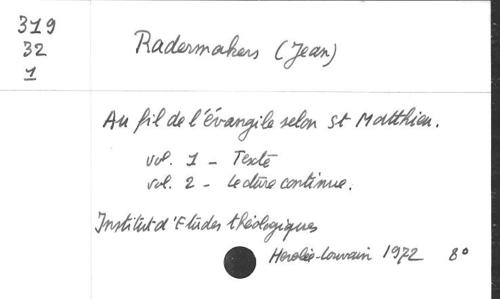 319
32
1
Radermakers (Jean)
Au fil de l'évangile selon St Matthieu.
vol. 1 - Texte
vol. 2 - Lecture continue.
Institut d'Etudes théologiques
Heverlée-Louvain 1972 8°